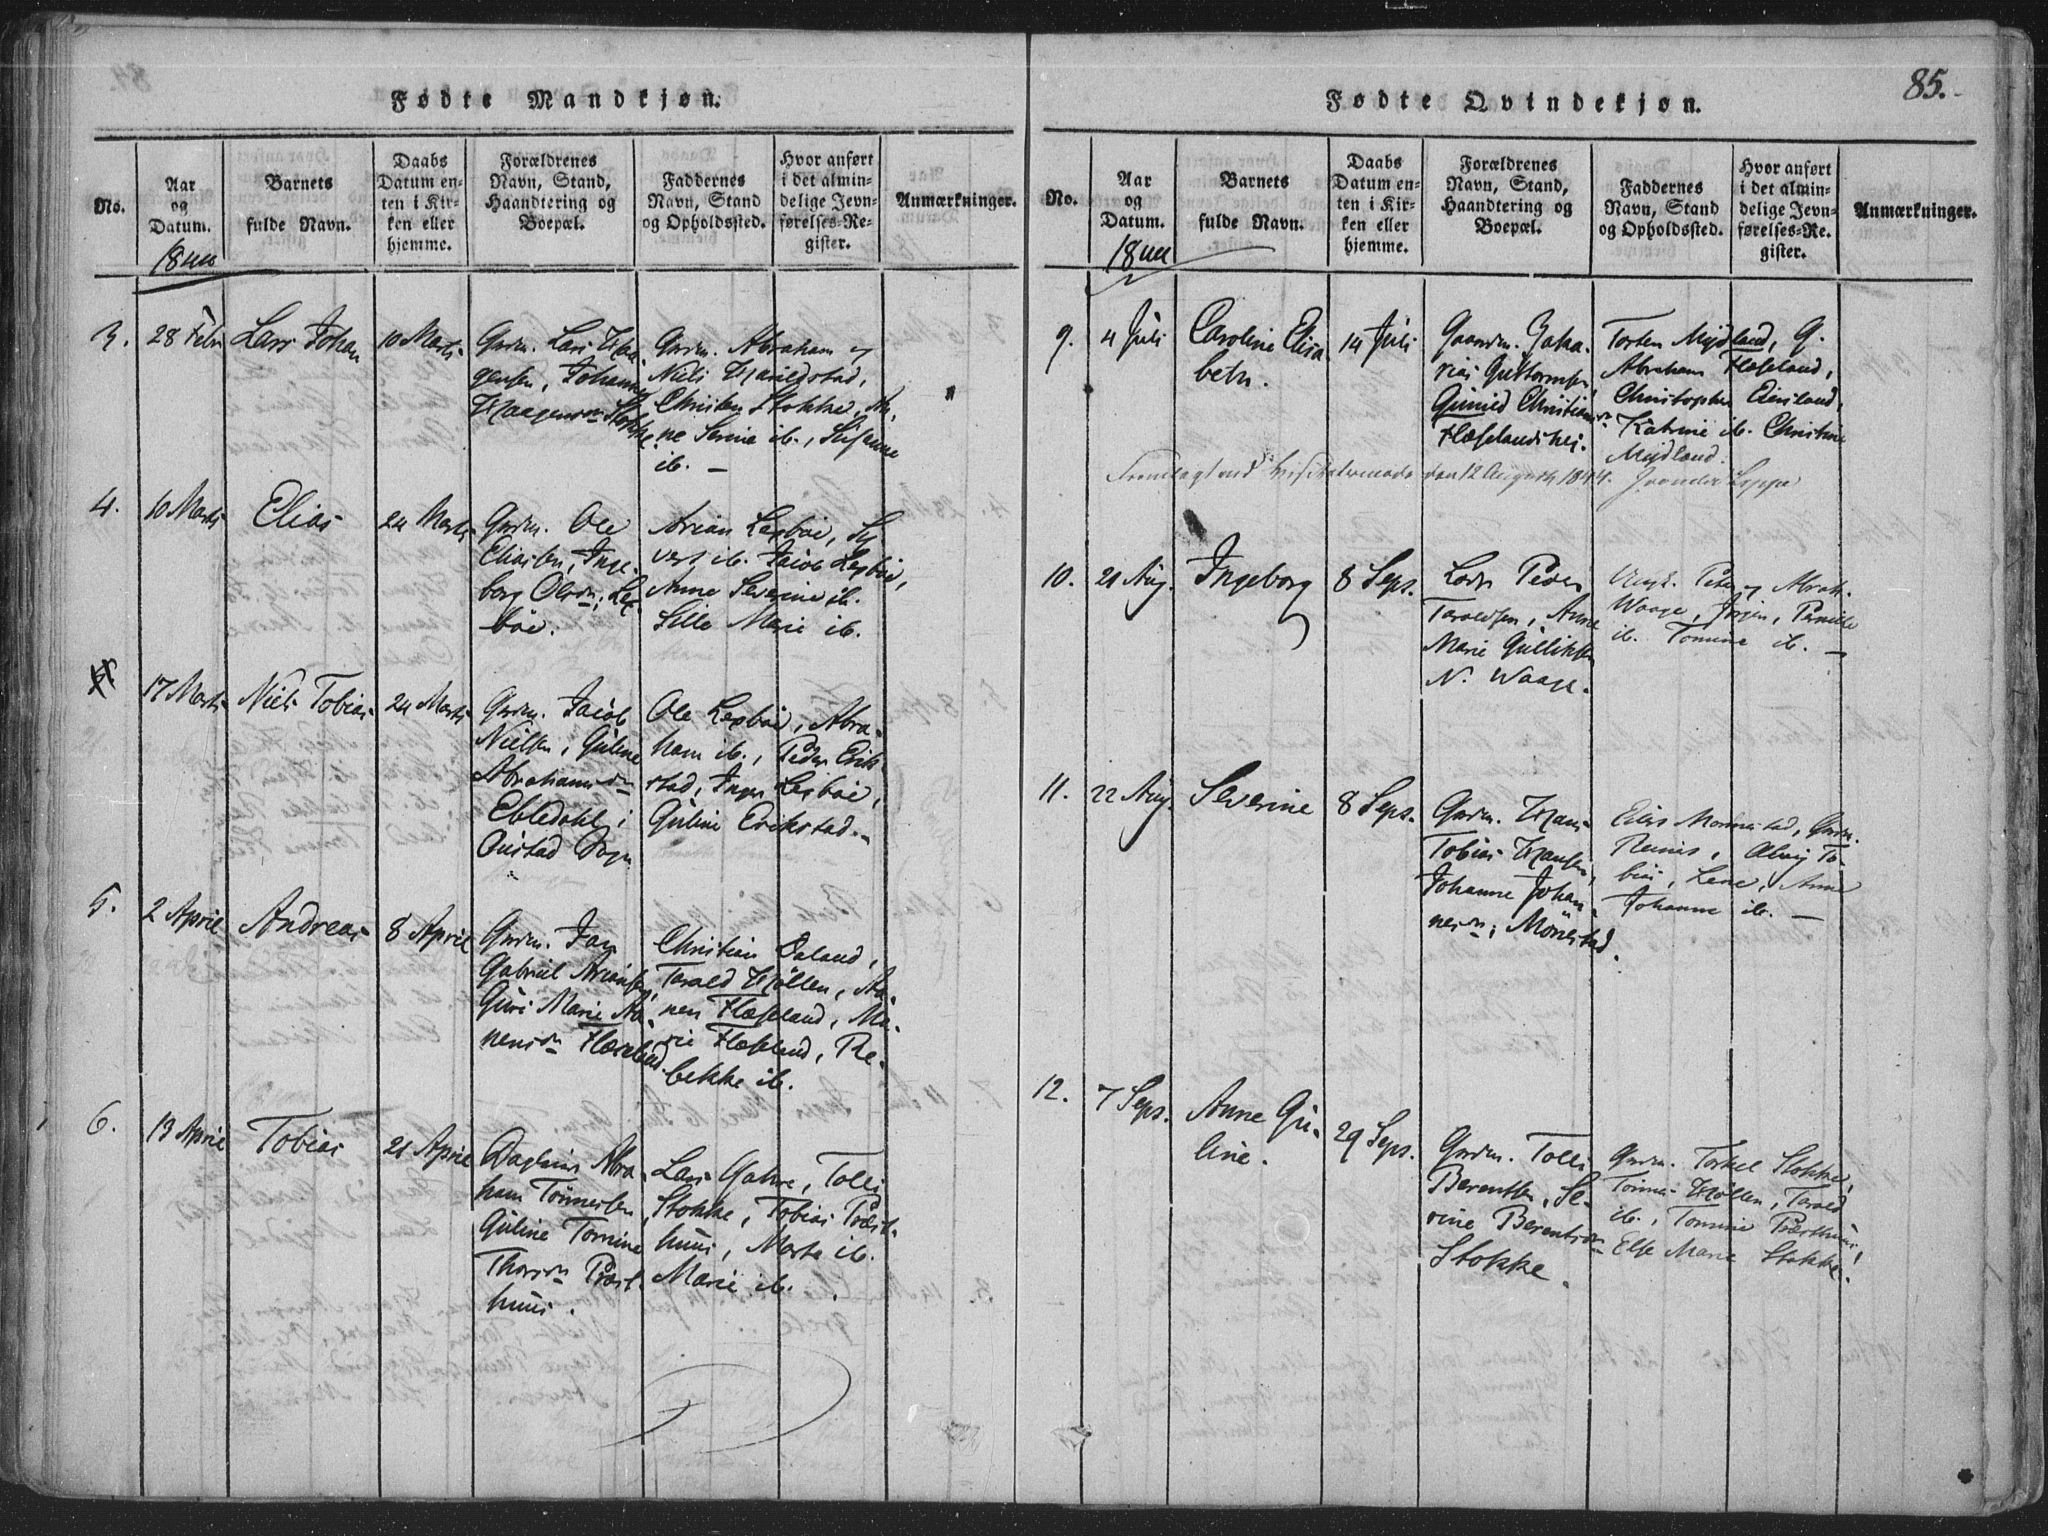 Fødte Mandkjøn.
No.
Aar og Datum.
Barnets fulde Navn.
Daabs Datum enten i Kirken eller hjemme.
Forældrenes Navn, Stand, Haandtering og Boepæl.
Faddernes Navn, Stand og Opholdssted.
Hvor anført i det almindelige Jevnførelses-Register.
Anmærkninger.
1844
3.
28 Febr
Lars Johan
10 Marts
Grdm. Lars Haa-
gensen, Johanne
Haagensdn Stokke.
Grdm. Abraham og
Niels Harildstad,
Christen Stokke, An-
ne Serine ib., Susanne
ib. —
4.
10 Marts
Elias
24 Marts
Grdm. Ole
Eliassen, Inge-
borg Olsdn, Lex-
böe.
Arian Lexböe, Sy
vert ib. Jacob Lexböe,
Anne Severine ib.
Sille Marie ib.
17 Marts
Niels Tobias
24 Marts
Grdm. Jacob
Nielsen, Guline
Abrahamsdn
Ebledahl i
Öiestad Sogn
Ole Lexböe, Abra-
ham ib., Peder Erik-
stad, Inger Lexböe,
Guline Erikstad. —
5.
2 April
Andreas
8 April
Grdm. Jan
Gabriel Ariansen,
Guri Marie Aa-
nensdn Flæseland.
Christian Daland,
Tarald Höllen, Aa-
nen Flæseland, Ma-
rie Flæseland, Re-
bekke ib.
6.
13 April
Tobias
21 April
Daglönr Abra-
ham Tönnessen
Guline Tomine
Thorsdn Præst-
huus.
Lars Gahre, Tolli
Stokke, Tobias Præst-
huus, Marte ib.
Marie ib.
85.
Fødte Qvindekjøn.
No.
Aar og Datum.
Barnets fulde Navn.
Daabs Datum enten i Kirken eller hjemme.
Forældrenes Navn, Stand, Haandtering og Boepæl.
Faddernes Navn, Stand og Opholdssted.
Hvor anført i det almindelige Jevnførelses-Register.
Anmærkninger.
1844
9.
4 Juli
Caroline Elisa
beth.
14 Juli
Gaardm. Zaka-
rias Guttormsen,
Gunild Christiansdn
Flæselandshei.
Torsten Mydland, G.
Abraham Flæseland,
Christopher Eiersland,
Katrine ib. Christine
Mydland.
Fremlagt ved Visitatsen den 12 August 1844.
10.
21 Aug.
Ingeborg
8 Sept.
Lods Peder
Taraldsen, Anne
Marie Gulliksen
N. Waage.
Ungk. Peter og Abrah.
Waage, Jörgen, Pernille
ib. Tomine ib. —
11.
22 Aug.
Severine
8 Sept.
Grdm. Hans
Tobias Hansen,
Johanne Johan-
nesdn, Mönestad.
Eilif Monnestad, Grdm.
Reiners, Oluf To-
bias, Lene, Anne
Johanne ib. —
12.
7 Sept.
Anne Gu-
line.
29 Sept.
Grdm. Tolli
Berentsen, Se-
rine Berentsdn
Stokke.
Grdm. Torkel Stokke,
Tönnes Höllen, Tarald
ib., Tomine Præsthuus,
Else Marie Stokke.